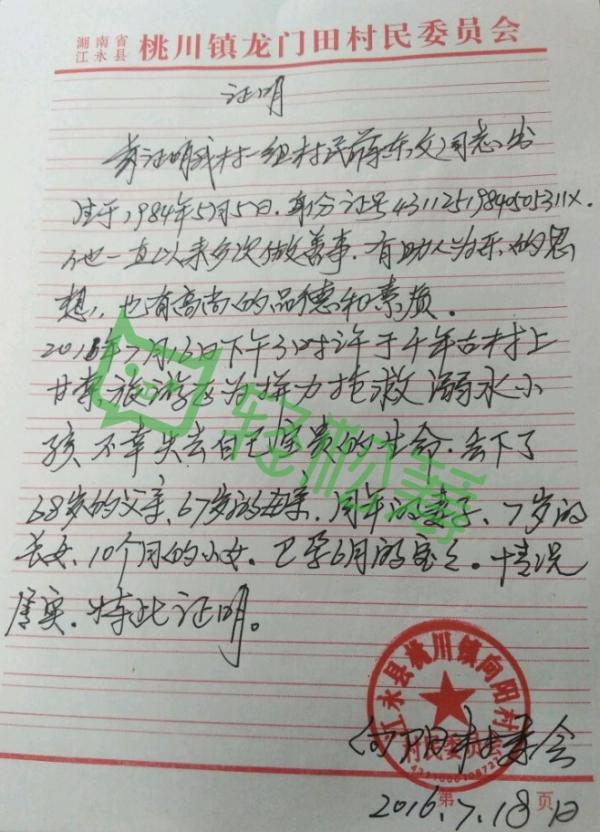 湖南省
江永县
桃川镇龙门田村民委员会
证明
兹证明我村一组村民蒋东文同志,出
生于1984年5月5日.身份证号43112519840505311X.
他一直以来多次做善事.有助人为乐的思
想,也有高尚的品德和素质。
2016年7月16日下午3时许于千年古村上
甘棠旅游区为拼力抢救溺水小
孩不幸失去自己宝贵的生命.丢下了
68岁的父亲、67岁的母亲.同年的妻子、7岁的
长女、10个月的小女.已孕6月的宝宝。情况
属实.特此证明。
江永县桃川镇向阳村
村民委员会
向阳村委会
2016.7.18日
第 页
轻松筹